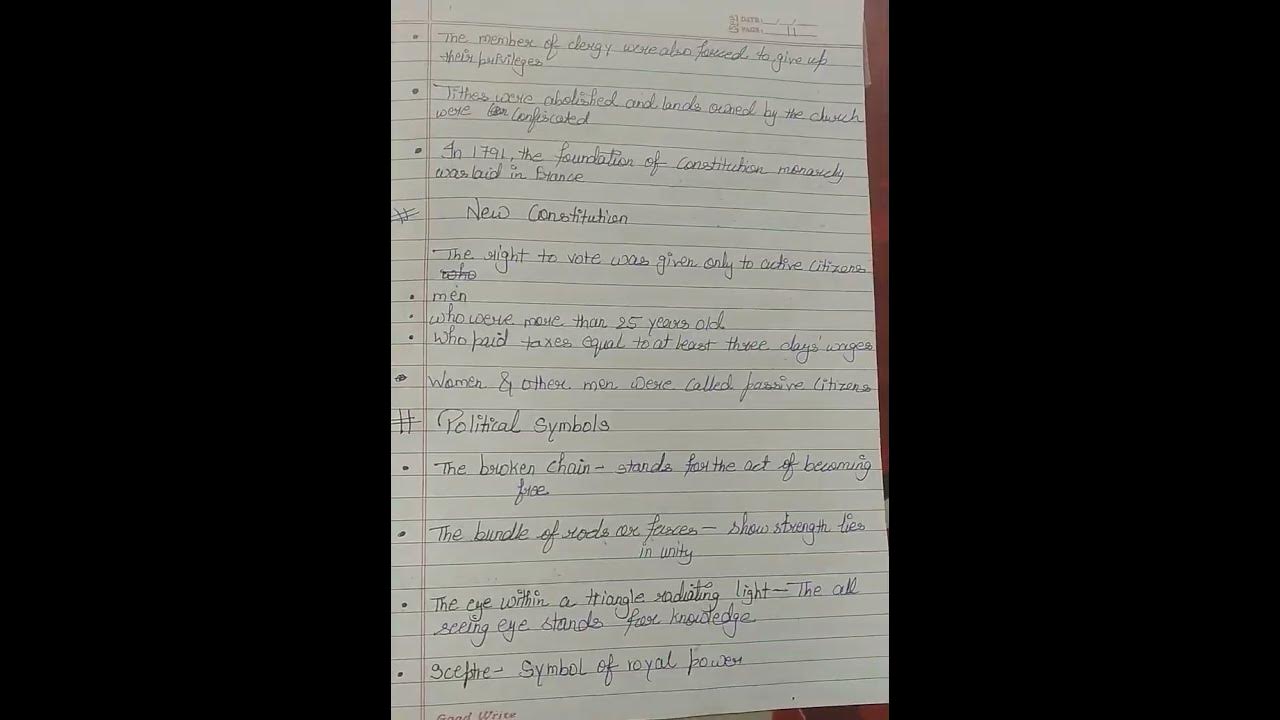 DATE: / /
PAGE: 11
• The member of clergy were also forced to give up
their privileges
• Tithes were abolished and lands owned by the church
were confiscated
• In 1791, the foundation of constitution monarchy
was laid in France
# New Constitution
The right to vote was given only to active citizens
who
• men
• who were more than 25 years old
• Who paid taxes equal to at least three days' wages
• Women & other men were called passive citizens
# Political Symbols
• The broken chain - stands for the act of becoming
free
• The bundle of rods or fasces - show strength lies
in unity
• The eye within a triangle radiating light - The all
seeing eye stands for knowledge
• Sceptre - Symbol of royal power
Good Write